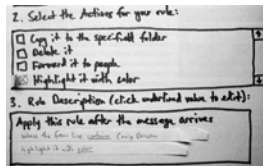 2. Select the Actions for your rule:
Copy it to the specified folder
Delete it
Forward it to people
Highlight it with color
3. Rule Description (click underlined value to edit):
Apply this rule after the message arrives
where the From line contains
highlight it with color